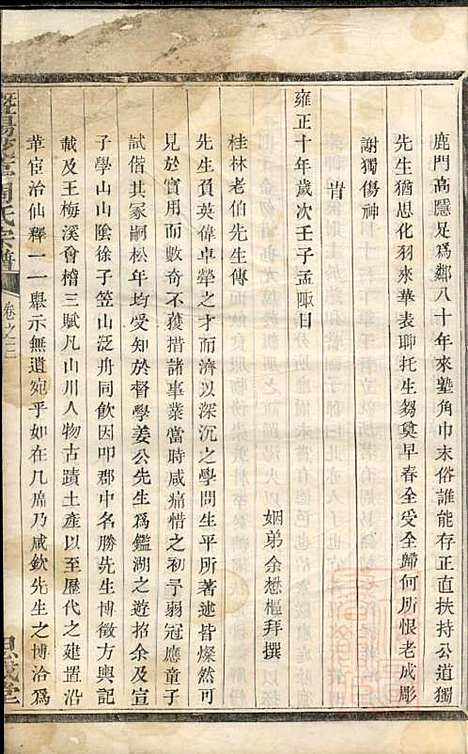 鹿門高隱足爲鄰八十年來墊角巾末俗誰能存正直扶持公道獨
先生猶思化羽來華表聊托生芻奠早春全受全歸何所恨老成彫
謝獨傷神
旹
雍正十年歲次壬子孟陬月
姻弟余懋樞拜撰
桂林老伯先生傳
先生負英偉卓犖之才而濟以深沉之學問生平所著述皆燦然可
見於世而數奇不獲措諸事業當時咸痛惜之初予弱冠應童子
試偕其冡嗣松年均受知於督學姜公先生爲鑑湖之遊招余及宣
子學山山陰徐子笠山泛舟同飲因叩郡中名勝先生博徵方輿記
載及王梅溪會稽三賦凡山川人物古蹟土產以至歷代之建置沿
革宦治仙釋一一舉示無遺宛乎如在几席乃咸欽先生之博洽爲
周氏宗譜
卷之三
思成堂